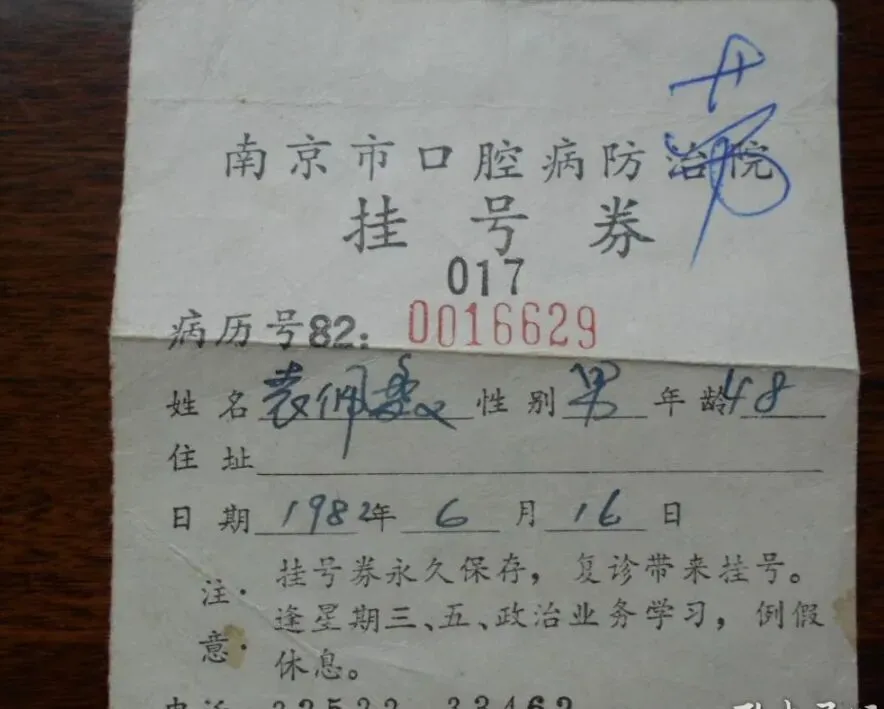 南京市口腔病防治院
挂号券
017
病历号82：0016629
姓名 袁佩 性别 男 年龄 48
住址
日期 1982年 6 月 16 日
注意
挂号券永久保存，复诊带来挂号。
逢星期三、五、政治业务学习，例假
休息。
电话 22532 33462